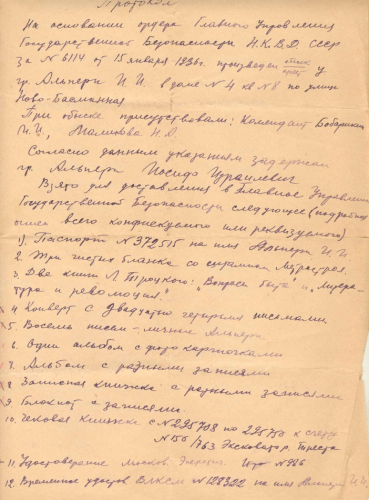 Протокол
На основании ордера Главного Управления
Государственной Безопасности Н.К.В.Д. СССР
за № 6114 от 15 января 1936г. произведен обыск арест у
гр. Альперн И.И. в доме № 4 кв № 8 по улице
Ново-Басманная
При обыске присутствовали: Комендант Бобарыкин
И.И., Маликова Н.А.
Согласно данным указаниям задержан
гр. Альперн Иосиф Израилевич
Взято для доставления в Главное Управление
Государственной Безопасности следующее (подробная
опись всего конфискуемого или реквизуемого)
1). Паспорт № 372515 на имя Альперн И.И
2. Три чистых бланка со штампом Метростроя.
3. Две книги Л Троцкого: „Вопросы быта" и „Литера-
тура и революция".
4 Конверт с двадцатью четырьмя письмами
5. Восемь писем - личные Альперн.
6. Один альбом с фото карточками
7. Альбом с разными записями
8 Записная книжка с разными записями
9 Блокнот с записями.
10. Чековая книжка с № 225708 по 225750 к счету
№ 150/763 Экскаватор. Треста
11. Удостоверение Москов. Энергет.
12. Временное удостов ВЛКСМ № 128322 на имя Альперн И.И.